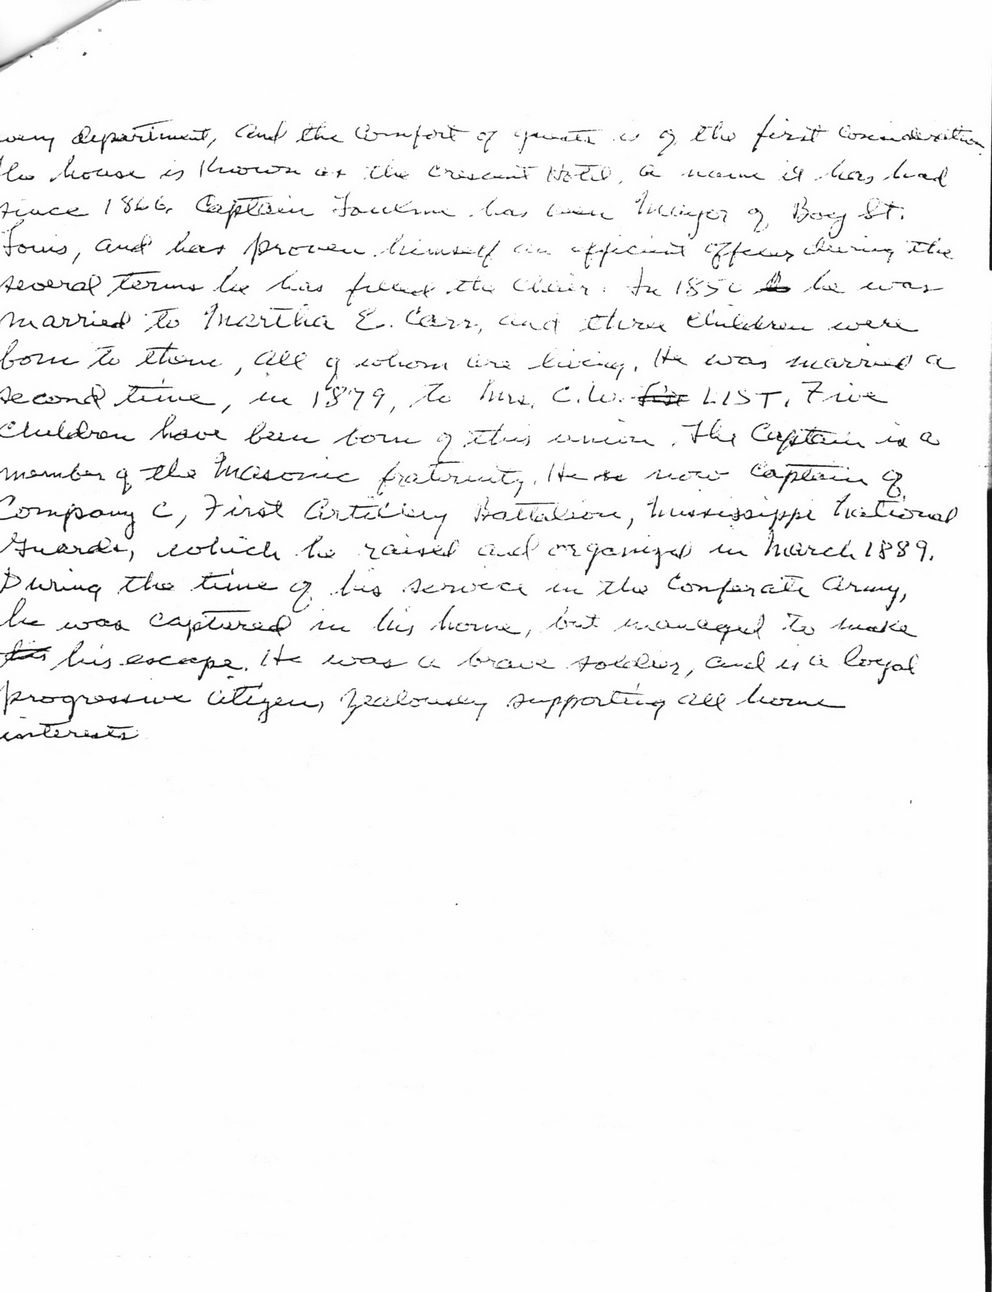 every department, and the comfort of guests is of the first consideration.
The house is known as the Crescent Hotel, a name it has had
since 1866. Captain has been Mayor of Bay St.
Louis, and has proven himself an efficient officer during the
several terms he has filled the chair. In he was
married to Martha E. Carr, and three children were
born to them, all of whom are living. He was married a
second time, in 1879, to Mrs. C.W. LIST. Five
children have been born of this union. The Captain is a
member of the Masonic fraternity. He is now Captain of
Company C, First Artillery Battalion, Mississippi National
Guards, which he raised and organized in March 1889.
During the time of his service in the Conferate Army,
he was captured in his home, but managed to make
his escape. He was a brave soldier, and is a loyal
progressive citizen, zealously supporting all home
interests